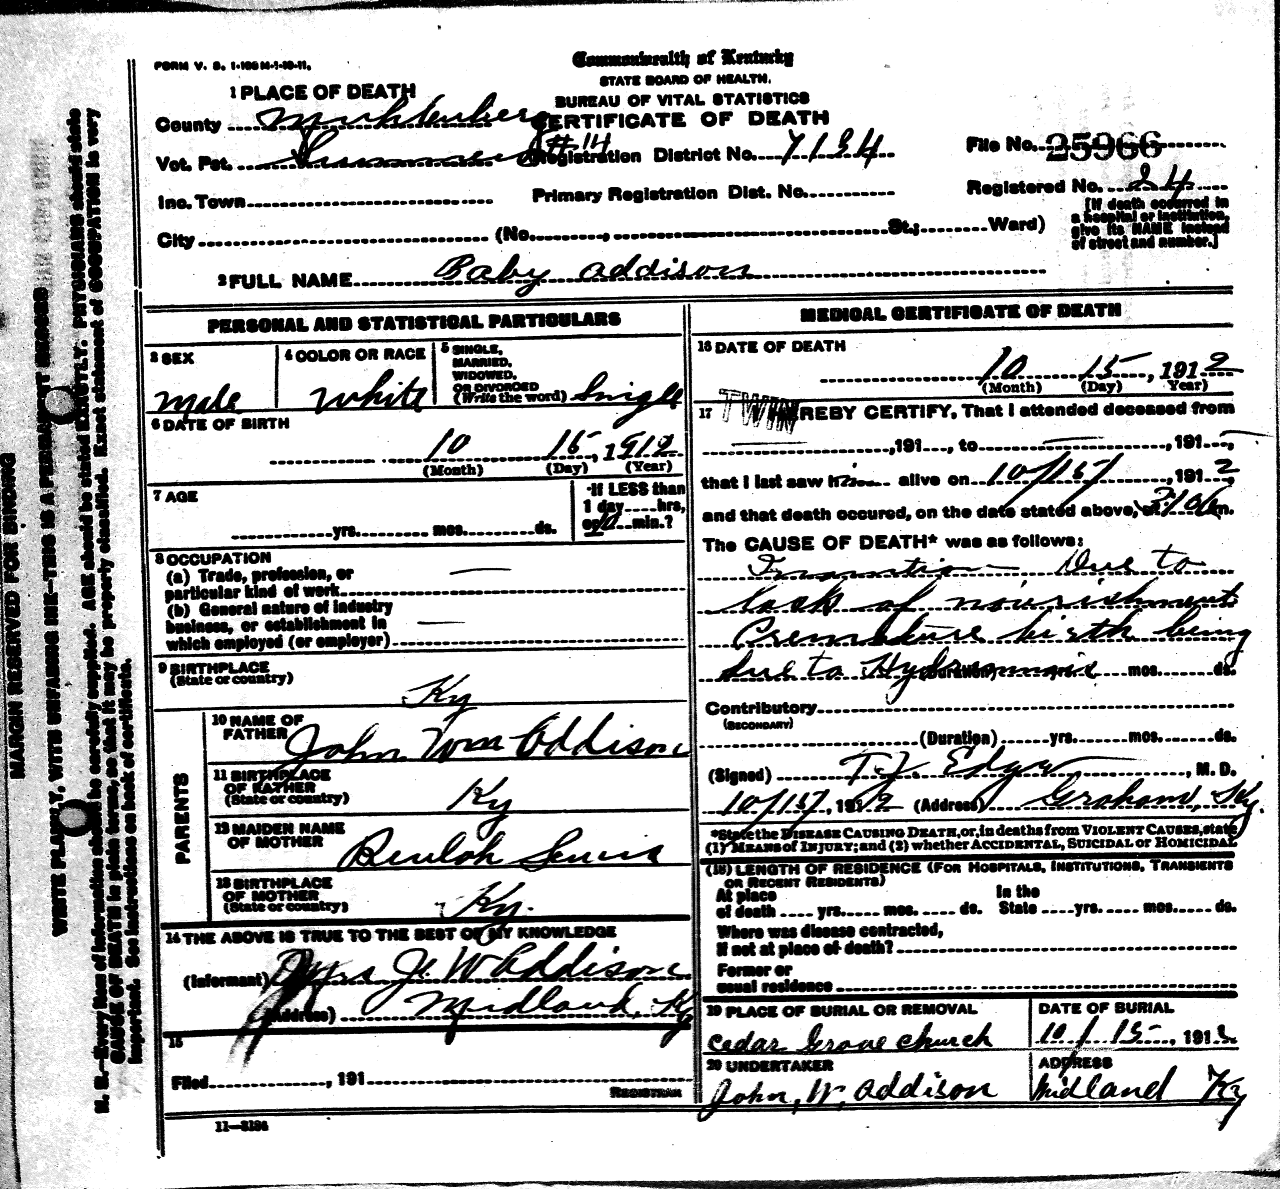 FORM V. S. 1-100M-1-10-11.
Commonwealth of Kentucky
STATE BOARD OF HEALTH.
BUREAU OF VITAL STATISTICS
CERTIFICATE OF DEATH
1 PLACE OF DEATH
County Muhlenberg
Vot. Pct. #14
Registration District No. 7134
File No. 25966
Inc. Town
Primary Registration Dist. No.
Registered No. 24
City (No. , St.; Ward)
[If death occurred in
a hospital or institution,
give its NAME instead
of street and number.]
2 FULL NAME Baby Addison
PERSONAL AND STATISTICAL PARTICULARS
3 SEX
Male
4 COLOR OR RACE
White
5 SINGLE,
MARRIED,
WIDOWED,
OR DIVORCED
(Write the word) Single
6 DATE OF BIRTH
10 15, 1912
(Month) (Day) (Year)
7 AGE
yrs. mos. ds.
If LESS than
1 day hrs,
or 10 min.?
8 OCCUPATION
(a) Trade, profession, or
particular kind of work
(b) General nature of industry
business, or establishment in
which employed (or employer)
9 BIRTHPLACE
(State or country)
Ky
PARENTS
10 NAME OF
FATHER John Wm Addison
11 BIRTHPLACE
OF FATHER
(State or country) Ky
12 MAIDEN NAME
OF MOTHER Beulah
13 BIRTHPLACE
OF MOTHER
(State or country) Ky.
14 THE ABOVE IS TRUE TO THE BEST OF MY KNOWLEDGE
(Informant) Mrs J. W Addison
(Address) Midland, Ky
15
Filed , 191
REGISTRAR
11-3184
MEDICAL CERTIFICATE OF DEATH
16 DATE OF DEATH
10 15, 1912
(Month) (Day) Year)
17 TWIN HEREBY CERTIFY, That I attended deceased from
,191 , to , 191
that I last saw him alive on 10/15/ 1912,
and that death occured, on the date stated above, at m.
The CAUSE OF DEATH* was as follows:
Inanition Due to
lack of nourishment
Premature birth being
due to Hydramnois (Duration) yrs. mos. ds.
Contributory
(SECONDARY)
(Duration) yrs. mos. ds.
(Signed) , M. D.
10/15/, 1912 (Address) Graham, Ky.
*State the DISEASE CAUSING DEATH, or, in deaths from VIOLENT CAUSES, state
(1) MEANS of INJURY; and (2) whether ACCIDENTAL, SUICIDAL or HOMICIDAL
(18) LENGTH OF RESIDENCE (FOR HOSPITALS, INSTITUTIONS, TRANSIENTS
OR RECENT RESIDENTS)
At place
of death yrs. mos. ds.
In the
State yrs. mos. ds.
Where was disease contracted,
if not at place of death?
Former or
usual residence
19 PLACE OF BURIAL OR REMOVAL
Cedar Grove Church
DATE OF BURIAL
10/15, 1912
20 UNDERTAKER
John, W, Addison
ADDRESS
Midland Ky
MARGIN RESERVED FOR BINDING
WRITE PLAINLY, WITH UNFADING INK—THIS IS A PERMANENT RECORD
N. B.—Every item of information should be carefully supplied. AGE should be stated EXACTLY. PHYSICIANS should state
CAUSE OF DEATH in plain terms, so that it may be properly classified. Exact statement of OCCUPATION is very
important. See instructions on back of certificate.